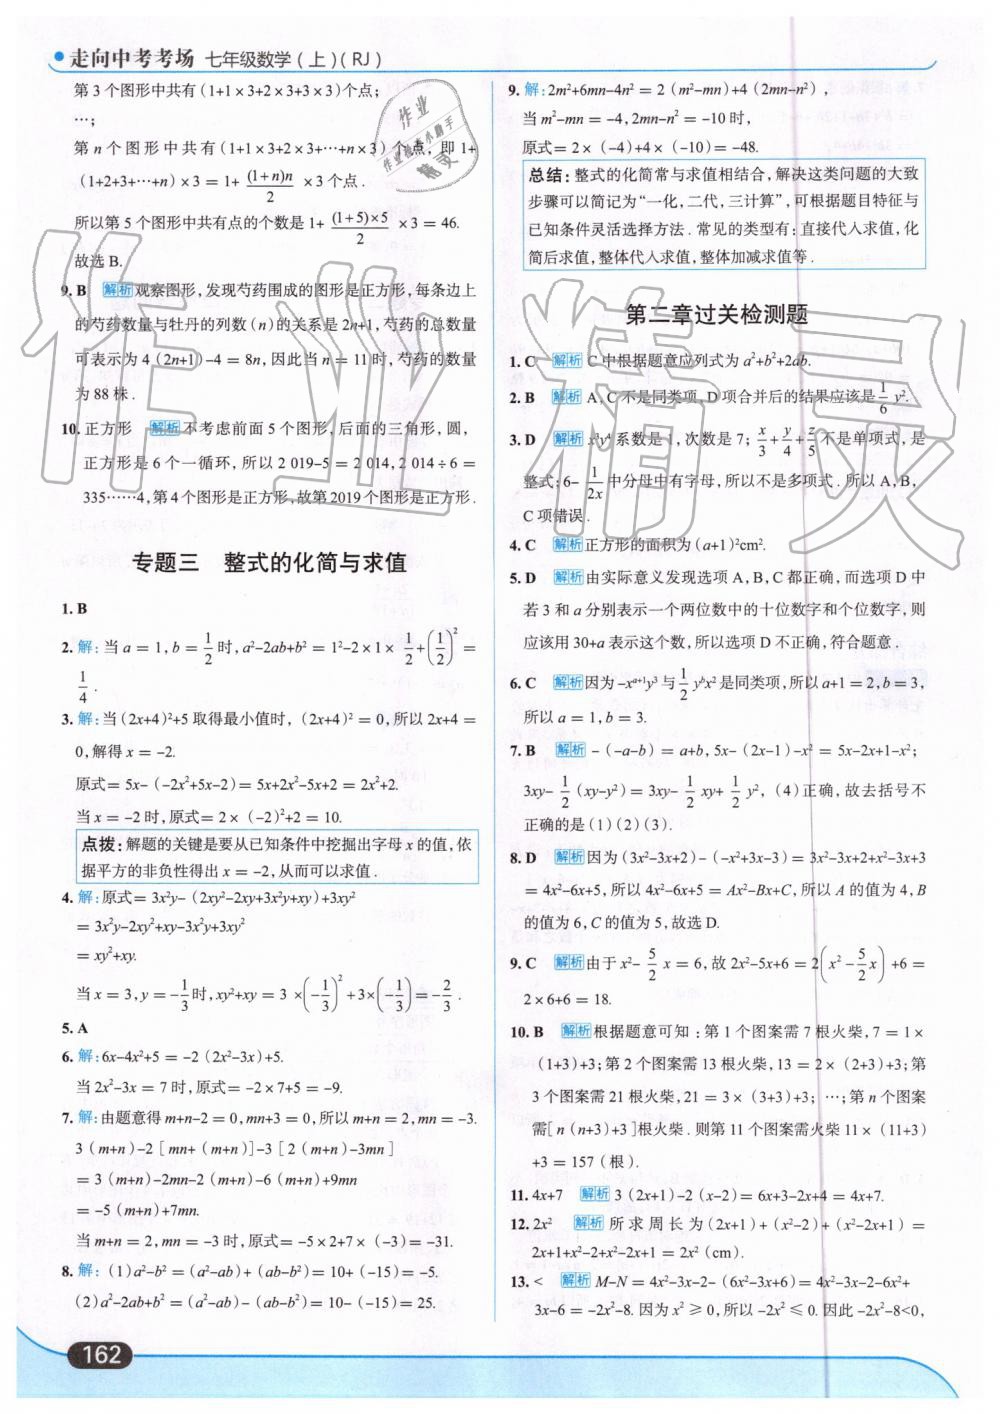 走向中考考场 七年级数学(上)(RJ)
第3个图形中共有(1+1×3+2×3+3×3)个点;
…;
第n个图形中共有(1+1×3+2×3+…+n×3)个点,即1+
(1+2+3+…+n)×3=1+(1+n)n/2×3个点.
所以第5个图形中共有点的个数是1+(1+5)×5/2×3=46.
故选B.
9. B 解析 观察图形,发现芍药围成的图形是正方形,每条边上
的芍药数量与牡丹的列数(n)的关系是2n+1,芍药的总数量
可表示为4(2n+1)-4=8n,因此当n=11时,芍药的数量
为88株.
10. 正方形 解析 不考虑前面5个图形,后面的三角形,圆,
正方形是6个一循环,所以2 019-5=2 014,2 014÷6=
335……4,第4个图形是正方形,故第2019个图形是正方形.
专题三 整式的化简与求值
1. B
2. 解:当a=1,b=1/2时,a²-2ab+b²=1²-2×1×1/2+(1/2)²=
1/4.
3. 解:当(2x+4)²+5取得最小值时,(2x+4)²=0,所以2x+4=
0,解得x=-2.
原式=5x-(-2x²+5x-2)=5x+2x²-5x+2=2x²+2.
当x=-2时,原式=2×(-2)²+2=10.
点拨:解题的关键是要从已知条件中挖掘出字母x的值,依
据平方的非负性得出x=-2,从而可以求值.
4. 解:原式=3x²y-(2xy²-2xy+3x²y+xy)+3xy²
=3x²y-2xy²+xy-3x²y+3xy²
=xy²+xy.
当x=3,y=-1/3时,xy²+xy=3×(-1/3)²+3×(-1/3)=-2/3.
5. A
6. 解:6x-4x²+5=-2(2x²-3x)+5.
当2x²-3x=7时,原式=-2×7+5=-9.
7. 解:由题意得m+n-2=0,mn+3=0,所以m+n=2,mn=-3.
3(m+n)-2[mn+(m+n)]-3[2(m+n)-3mn]
=3(m+n)-2mn-2(m+n)-6(m+n)+9mn
=-5(m+n)+7mn.
当m+n=2,mn=-3时,原式=-5×2+7×(-3)=-31.
8. 解:(1)a²-b²=(a²-ab)+(ab-b²)=10+(-15)=-5.
(2)a²-2ab+b²=(a²-ab)-(ab-b²)=10-(-15)=25.
9. 解:2m²+6mn-4n²=2(m²-mn)+4(2mn-n²),
当m²-mn=-4,2mn-n²=-10时,
原式=2×(-4)+4×(-10)=-48.
总结:整式的化简常与求值相结合,解决这类问题的大致
步骤可以简记为“一化,二代,三计算”,可根据题目特征与
已知条件灵活选择方法.常见的类型有:直接代入求值,化
简后求值,整体代入求值,整体加减求值等.
第二章过关检测题
1. C 解析 C中根据题意应列式为a²+b²+2ab.
2. B 解析 A,C不是同类项,D项合并后的结果应该是1/6y².
3. D 解析 x³y⁴系数是1,次数是7;x/3+y/4+z/5不是单项式,是
整式;6-1/2x中分母中有字母,所以不是多项式.所以A,B,
C项错误.
4. C 解析 正方形的面积为(a+1)²cm².
5. D 解析 由实际意义发现选项A,B,C都正确,而选项D中
若3和a分别表示一个两位数中的十位数字和个位数字,则
应该用30+a表示这个数,所以选项D不正确,符合题意.
6. C 解析 因为-xᵃ⁺¹y³与1/2yᵇx²是同类项,所以a+1=2,b=3,
所以a=1,b=3.
7. B 解析 -(-a-b)=a+b,5x-(2x-1)-x²=5x-2x+1-x²;
3xy-1/2(xy-y²)=3xy-1/2xy+1/2y²,(4)正确,故去括号不
正确的是(1)(2)(3).
8. D 解析 因为(3x²-3x+2)-(-x²+3x-3)=3x²-3x+2+x²-3x+3
=4x²-6x+5,所以4x²-6x+5=Ax²-Bx+C,所以A的值为4,B
的值为6,C的值为5,故选D.
9. C 解析 由于x²-5/2x=6,故2x²-5x+6=2(x²-5/2x)+6=
2×6+6=18.
10. B 解析 根据题意可知:第1个图案需7根火柴,7=1×
(1+3)+3;第2个图案需13根火柴,13=2×(2+3)+3;第
3个图案需21根火柴,21=3×(3+3)+3;…;第n个图案
需[n(n+3)+3]根火柴.则第11个图案需火柴11×(11+3)
+3=157(根).
11. 4x+7 解析 3(2x+1)-2(x-2)=6x+3-2x+4=4x+7.
12. 2x² 解析 所求周长为(2x+1)+(x²-2)+(x²-2x+1)=
2x+1+x²-2+x²-2x+1=2x²(cm).
13. < 解析 M-N=4x²-3x-2-(6x²-3x+6)=4x²-3x-2-6x²+
3x-6=-2x²-8.因为x²≥0,所以-2x²≤0.因此-2x²-8<0,
162
作业精灵